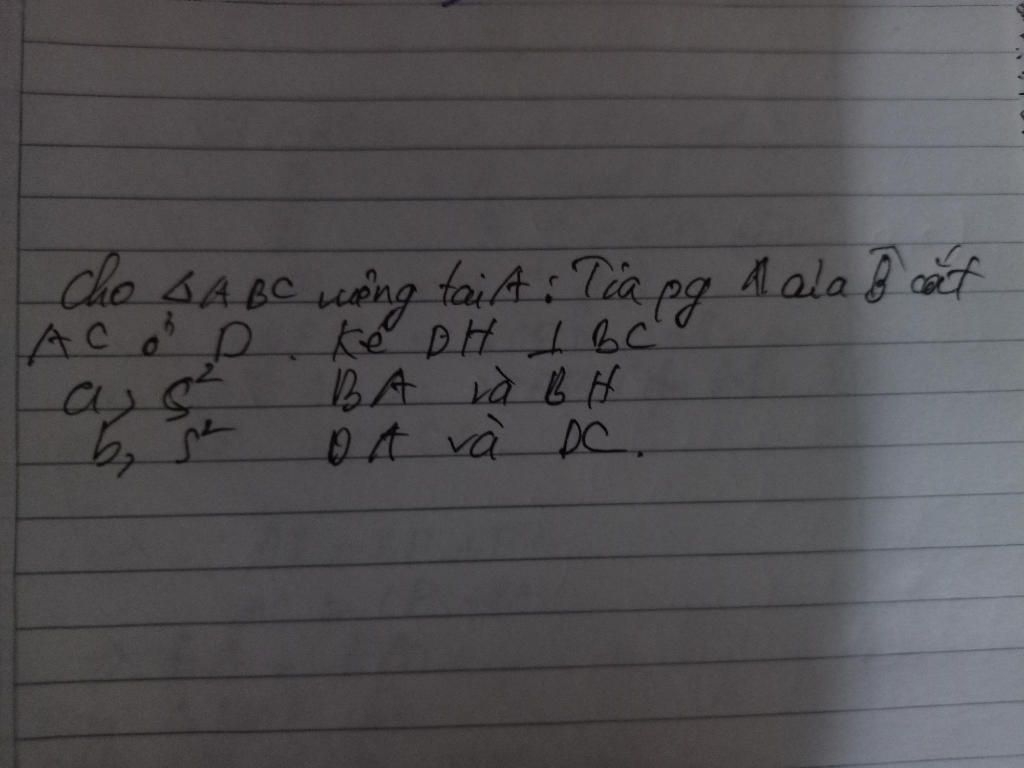 Cho ΔABC vuông tại A : Tia pg của B̂ cắt
AC ở D . Kẻ DH ⊥ BC
a, S² BA và BH
b, S² DA và DC.